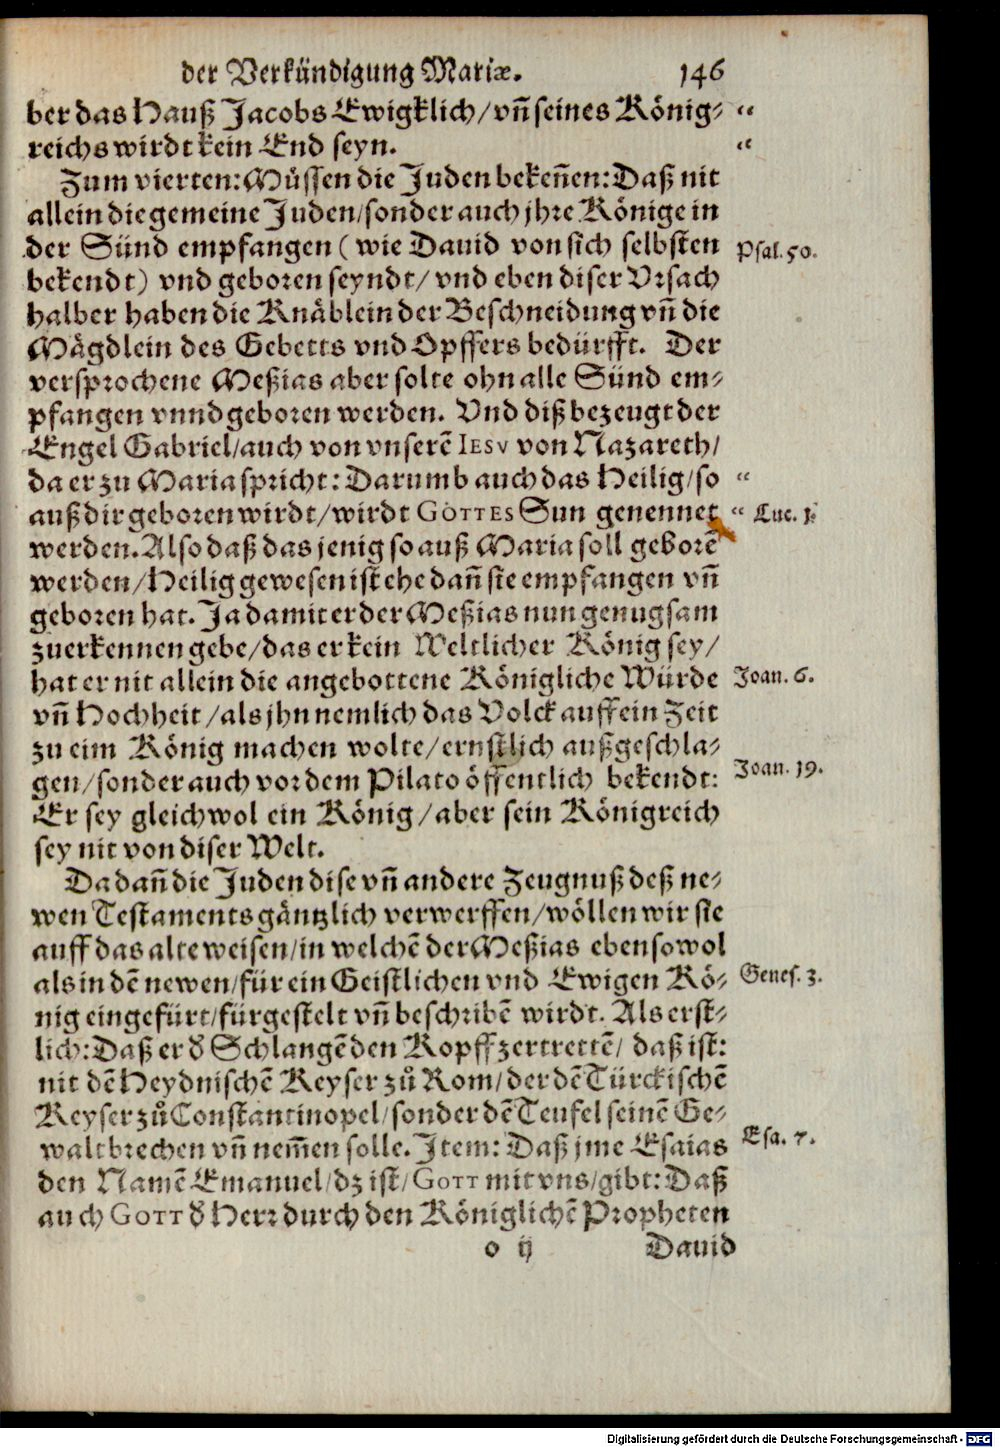 der Verkündigung Mariæ. 146
ber das Hauß Jacobs Ewigklich/vñ seines König- "
reichs wirdt kein End seyn. "
Zum vierten: Müssen die Juden bekeñen: Daß nit
allein die gemeine Juden/sonder auch jhre Könige in
der Sünd empfangen (wie Dauid von sich selbsten Psal. 50.
bekendt) vnd geboren seyndt/ vnd eben diser Vrsach
halber haben die Knäblein der Beschneidung vñ die
Mägdlein des Gebetts vnd Opffers bedürfft. Der
versprochene Meßias aber solte ohn alle Sünd em-
pfangen vnnd geboren werden. Vnd diß bezeugt der
Engel Gabriel/auch von vnserē IESV von Nazareth/
da er zu Maria spricht: Darumb auch das Heilig/so "
auß dir geboren wirdt/wirdt GOTTES Sun genennet " Luc. 1.
werden. Also daß das jenig so auß Maria soll geborē
werden/Heilig gewesen ist ehe dañ sie empfangen vñ
geboren hat. Ja damit er der Meßias nun genugsam
zuerkennen gebe/das er kein Weltlicher König sey/
hat er nit allein die angebottene Königliche Würde Joan. 6.
vñ Hochheit/als jhn nemlich das Volck auff ein Zeit
zu eim König machen wolte/ernstlich außgeschla-
gen/sonder auch vor dem Pilato öffentlich bekendt: Joan. 19.
Er sey gleichwol ein König/aber sein Königreich
sey nit von diser Welt.
Da dañ die Juden dise vñ andere Zeugnuß deß ne-
wen Testaments gäntzlich verwerffen/wöllen wir sie
auff das alte weisen/in welchē der Meßias eben so wol
als in dē newen/für ein Geistlichen vnd Ewigen Kö- Genes. 3.
nig eingefürt/fürgestelt vñ beschribē wirdt. Als erst-
lich: Daß er d̄ Schlangē den Kopff zertrettē/ daß ist:
nit dē Heydnischē Keyser zů Rom/der dē Türckischē
Keyser zů Constantinopel/sonder dē Teufel seinē Ge-
walt brechen vñ nem̄en solle. Item: Daß jme Esaias Esa. 7.
den Namē Emanuel/dz ist/GOTT mit vns/gibt: Daß
auch GOTT d̄ Herr durch den Königlichē Propheten
o ij Dauid
Digitalisierung gefördert durch die Deutsche Forschungsgemeinschaft - DFG